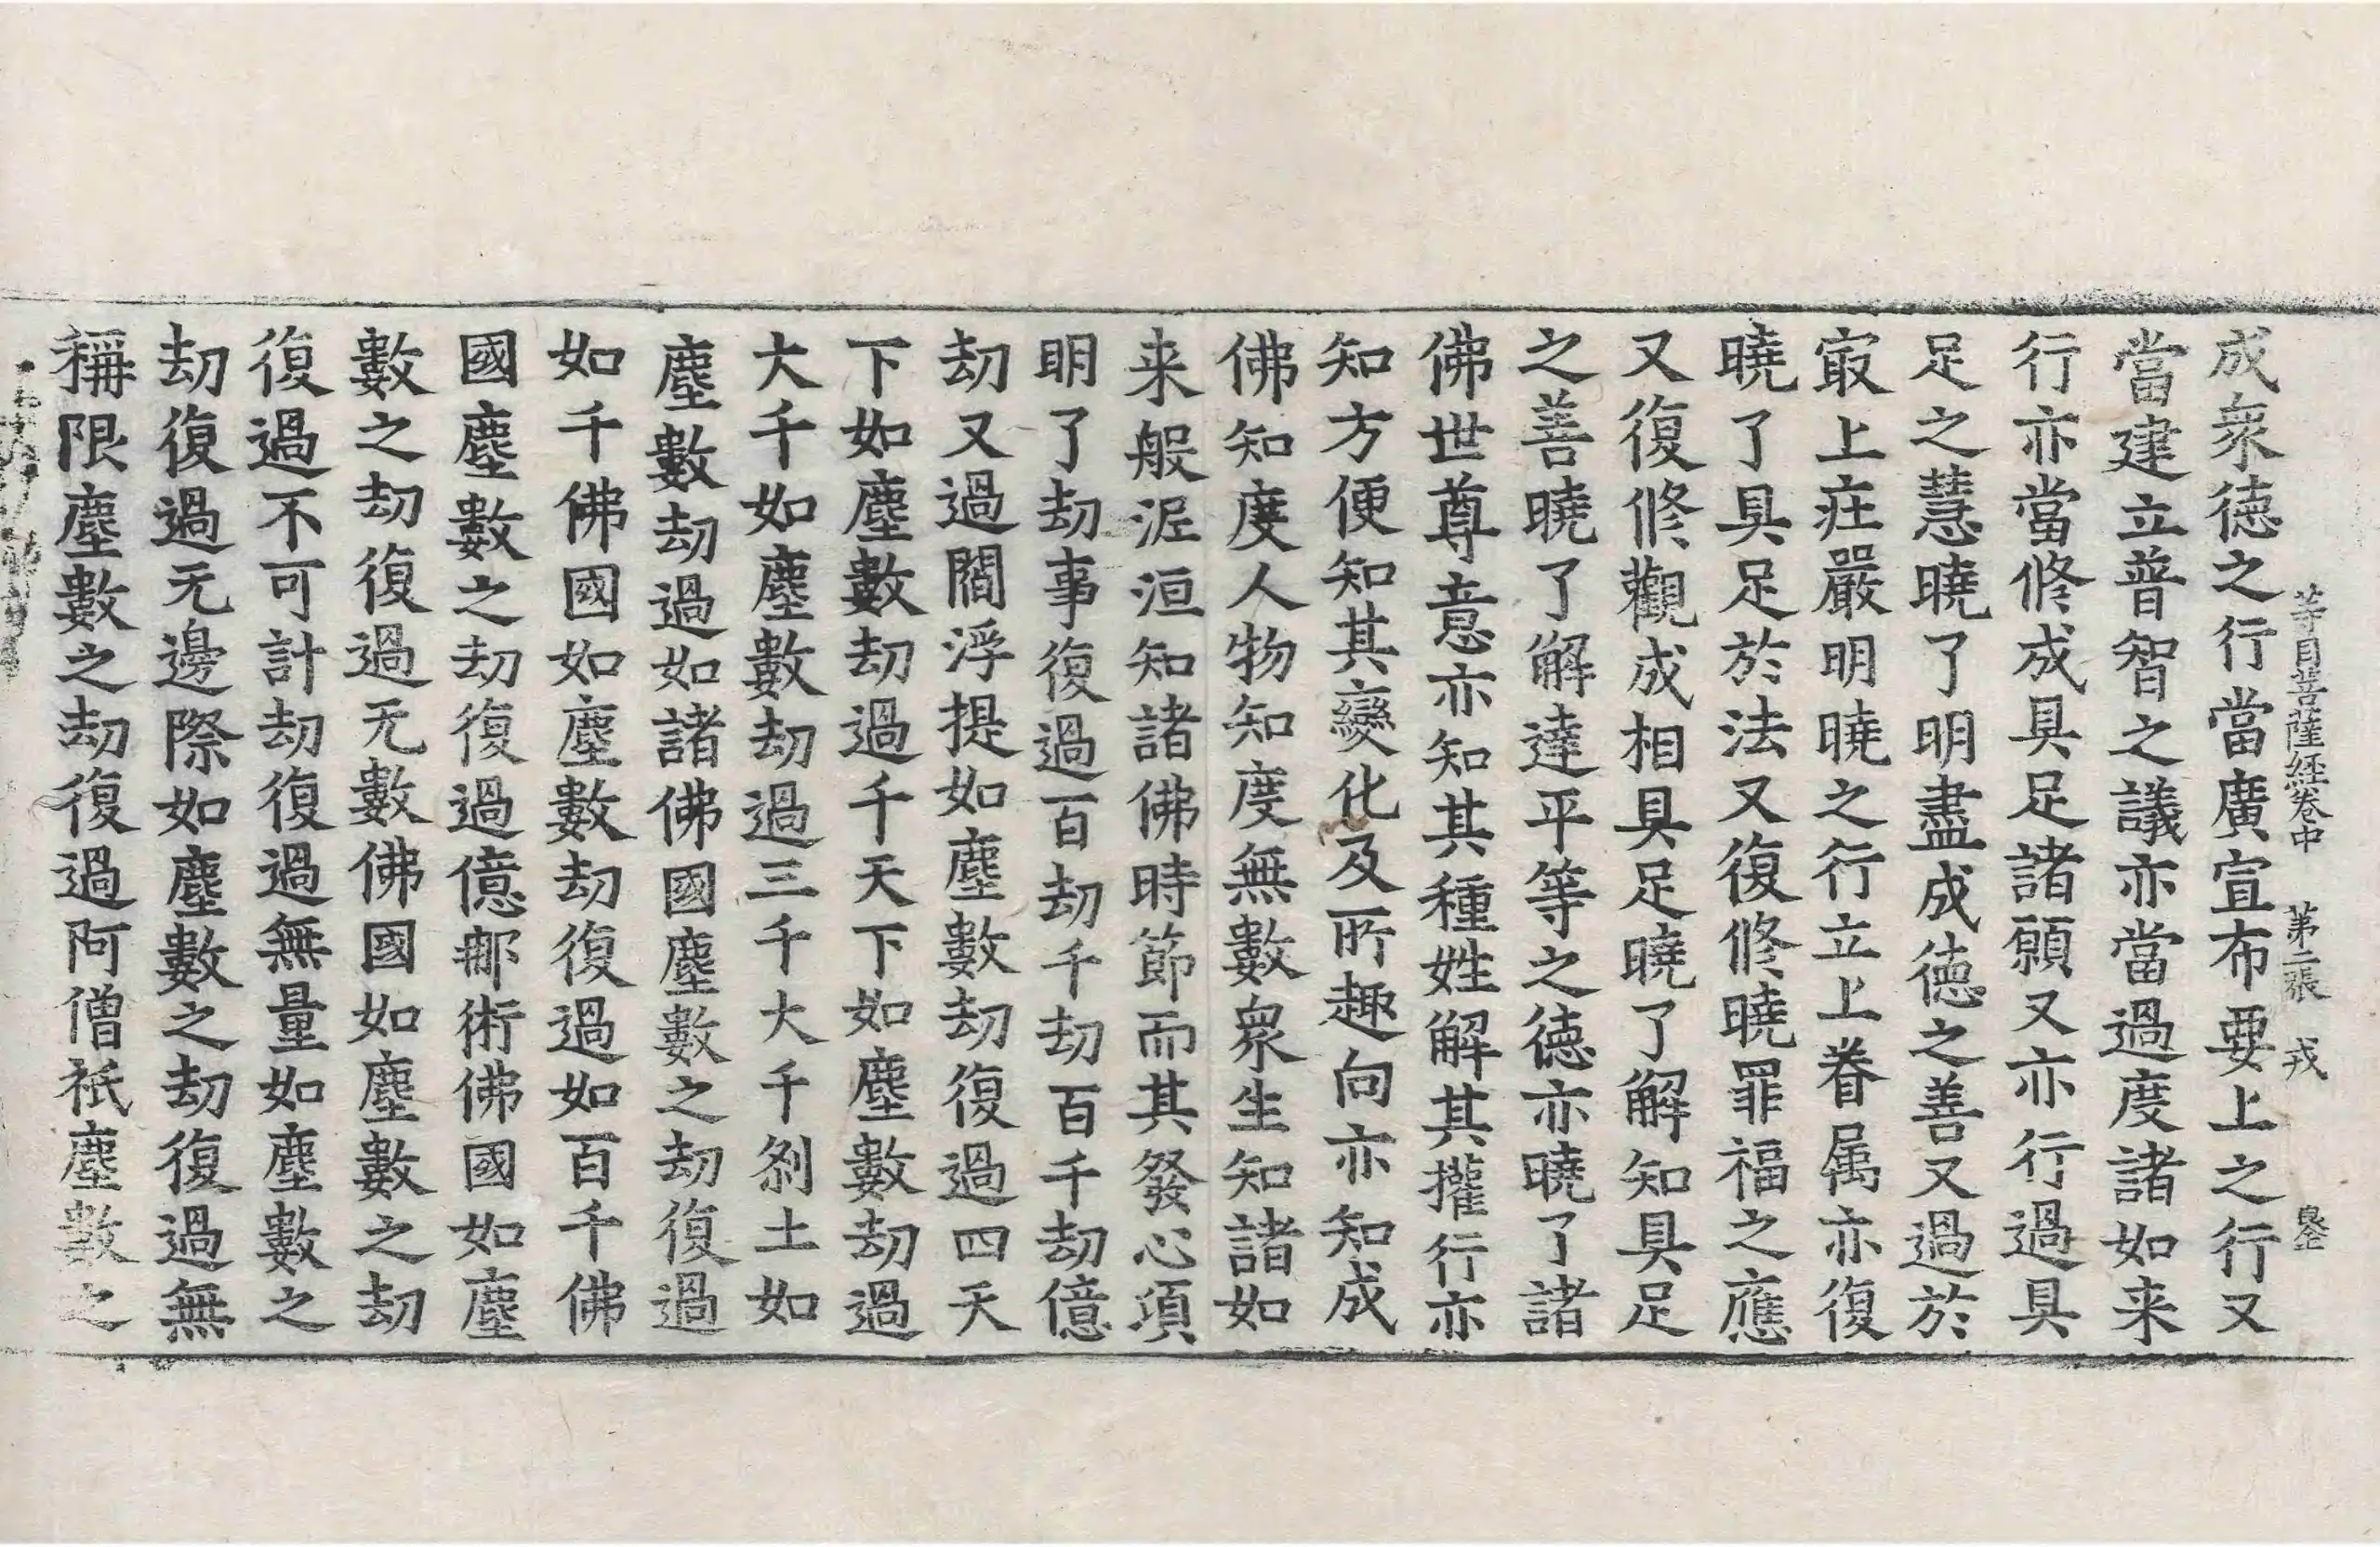 等目菩薩經卷中　第二張　戎
成衆德之行當廣宣布要上之行又
當建立普智之議亦當過度諸如来
行亦當修成具足諸願又亦行過具
足之慧曉了明盡成德之善又過於
㝡上庄嚴明曉之行立上眷属亦復
曉了具足於法又復修曉罪福之應
又復修觀成相具足曉了解知具足
之善曉了解達平等之德亦曉了諸
佛世尊意亦知其種姓解其㩲行亦
知方便知其變化及所趣向亦知成
佛知度人物知度無數衆生知諸如
来般泥洹知諸佛時節而其發心項
明了劫事復過百劫千劫百千劫億
劫又過閻浮提如塵數劫復過四天
下如塵數劫過千天下如塵數劫過
大千如塵數劫過三千大千刹土如
塵數劫過如諸佛國塵數之劫復過
如千佛國如塵數劫復過如百千佛
國塵數之劫復過億那術佛國如塵
數之劫復過无數佛國如塵數之劫
復過不可計劫復過無量如塵數之
劫復過无邊際如塵數之劫復過無
稱限塵數之劫復過阿僧祇塵數之